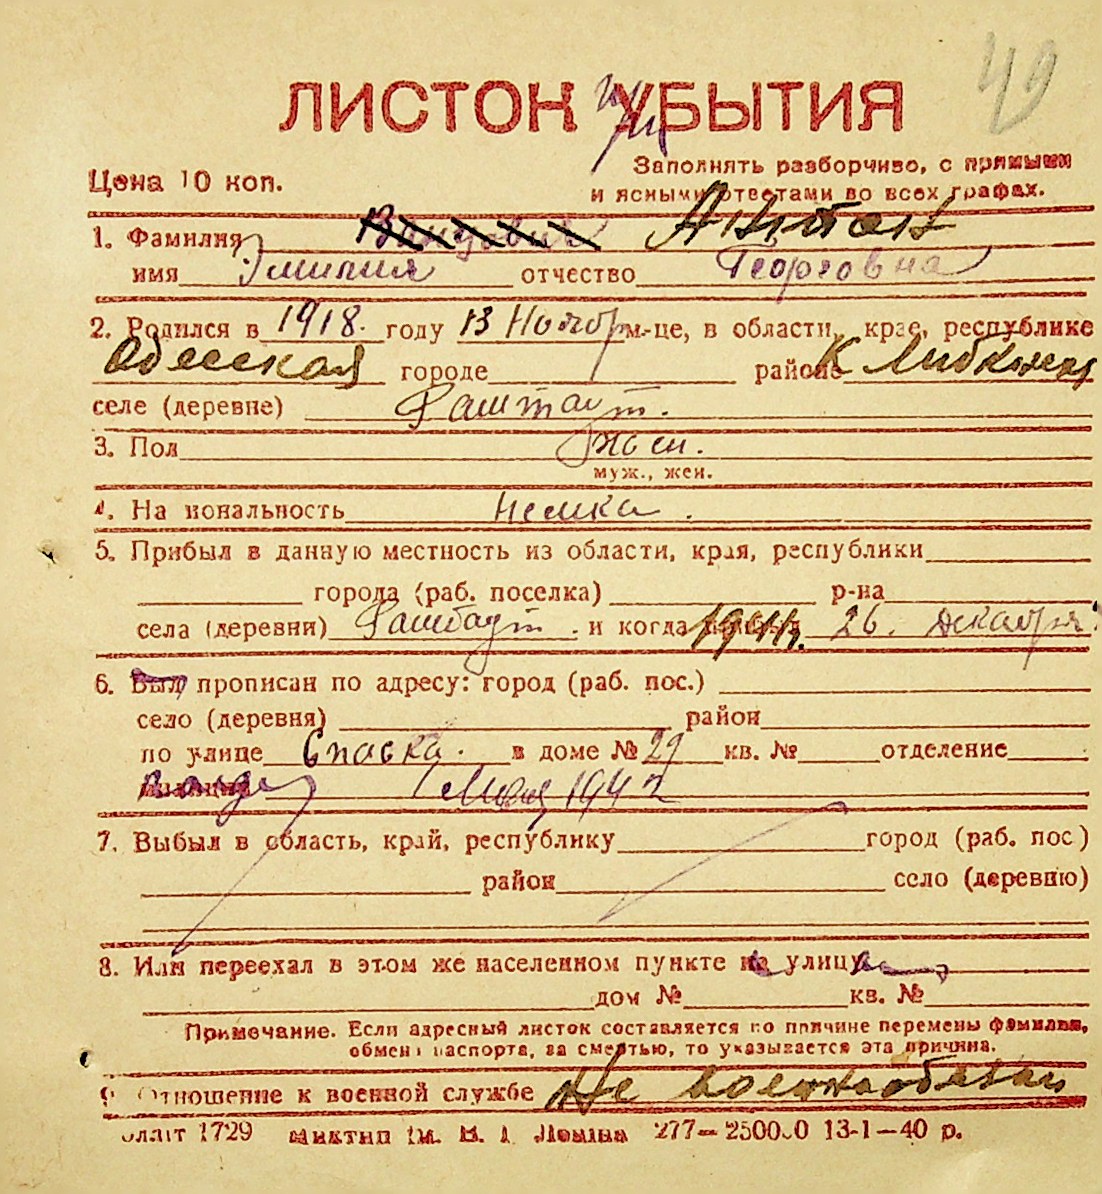 49
ЛИСТОК УБЫТИЯ
Цена 10 коп.
Заполнять разборчиво, с прямыми
и ясными ответами во всех графах.
1. Фамилия Антон
имя Эмилия отчество Георговна
2. Родился в 1918. году 13 Ноябр м-це, в области, крае, республике
Одесская городе районе К Либкнехт
селе (деревне) Раштаут.
3. Пол жен.
муж., жен.
4. Национальность немка.
5. Прибыл в данную местность из области, края, республики
города (раб. поселка) р-на
села (деревни) и когда 26. декабря
6. Был прописан по адресу: город (раб. пос.)
село (деревня) район
по улице Спаска. в доме № 29 кв. № отделение
1 Мая 1942
7. Выбыл в область, край, республику город (раб. пос)
район село (деревню)
8. Или переехал в этом же населенном пункте на улицу
дом № кв. №
Примечание. Если адресный листок составляется по причине перемены фамилии,
обмена паспорта, за смертью, то указывается эта причина.
9. Отношение к военной службе Не военнообязан
1729 им. В. И. Ленина 277—250000 13-1—40 р.